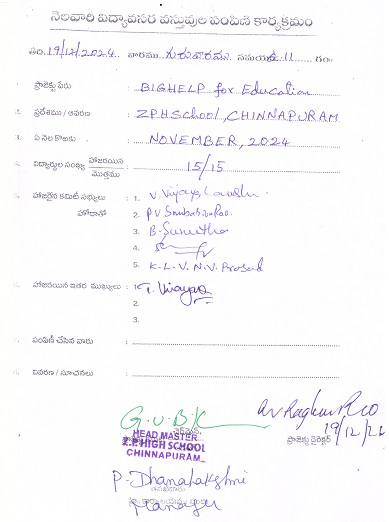 నెలవారి విద్యావసర వస్తువుల పంపిణీ కార్యక్రమం
తేది 19/12/2024 వారము గురువారము సమయం 11 గం
ప్రాజెక్టు పేరు : BIGHELP for Education
ప్రదేశము / ఆవరణ : ZPHSchool, CHINNAPURAM
ఏ నెల కొఱకు : NOVEMBER, 2024
విద్యార్థుల సంఖ్య హాజరయిన / మొత్తము : 15/15
హాజరైన కమిటీ సభ్యులు : 1.
హోదాతో 2. PV Sambasiva Rao
3. B. Sunitha
4.
5. K.L.V.N.V. Prasad
హాజరయిన ఇతర ముఖ్యులు : 1. T. Vinayaa
2.
3.
పంపిణీ చేసిన వారు :
వివరణ / సూచనలు :
G.V.B.K
HEAD MASTER
Z.P. HIGH SCHOOL
CHINNAPURAM
19/12/24
ప్రాజెక్టు డైరెక్టర్
P. Dhanalakshmi
Manager